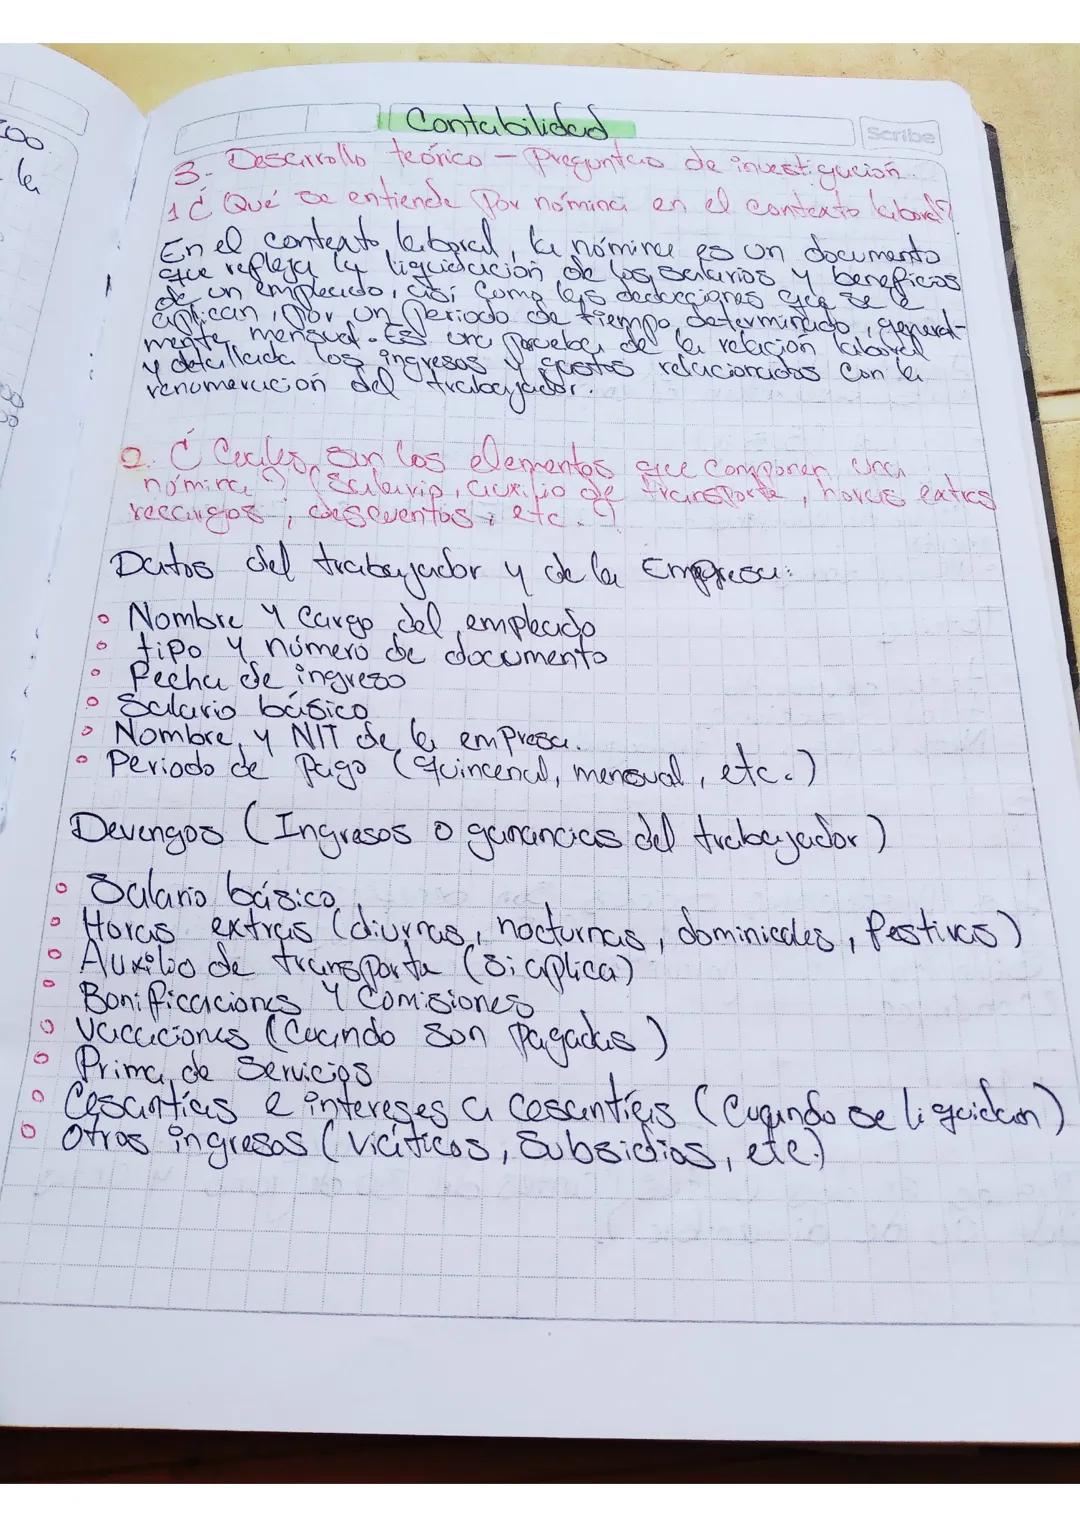 Contabilidad
Scribe
3.- Desarrollo teórico - Preguntas de investigación.
1 ¿ Qué se entiende Por nómina en el contexto laboral?
En el contexto laboral, la nómina es un documento
que refleja la liquidación de los salarios y beneficos
de un empleado, así como las deducciones que se le
aplican, por un periodo de tiempo determinado, general-
mente mensual. Es una prueba de la relación laboral
y detallada los ingresos y gastos relacionados con la
renumeracion del trabajador.
2. ¿ Cuales son los elementos que componen una
nómina? (Salario, auxilio de transporte, horas extras
recargos, descuentos, etc.)
Datos del trabajador y de la Empresa:
Nombre y Cargo del empleado
tipo y número de documento
Fecha de ingreso
Salario básico
Nombre y NIT de la empresa.
Periodo de Pago (quincenal, mensual, etc.)
Devengos (Ingresos o ganancias del trabajador)
Salario básico
Horas extras (diurnas, nocturnas, dominicales, festivas)
Auxilio de transporte (Si aplica)
Bonificaciones y Comisiones
Vacaciones (Cuando son Pagadas)
Prima de Servicios
Cesantías e intereses a cesantías (Cuando se liquidan)
Otros ingresos (Viáticos, Subsidios, etc.)